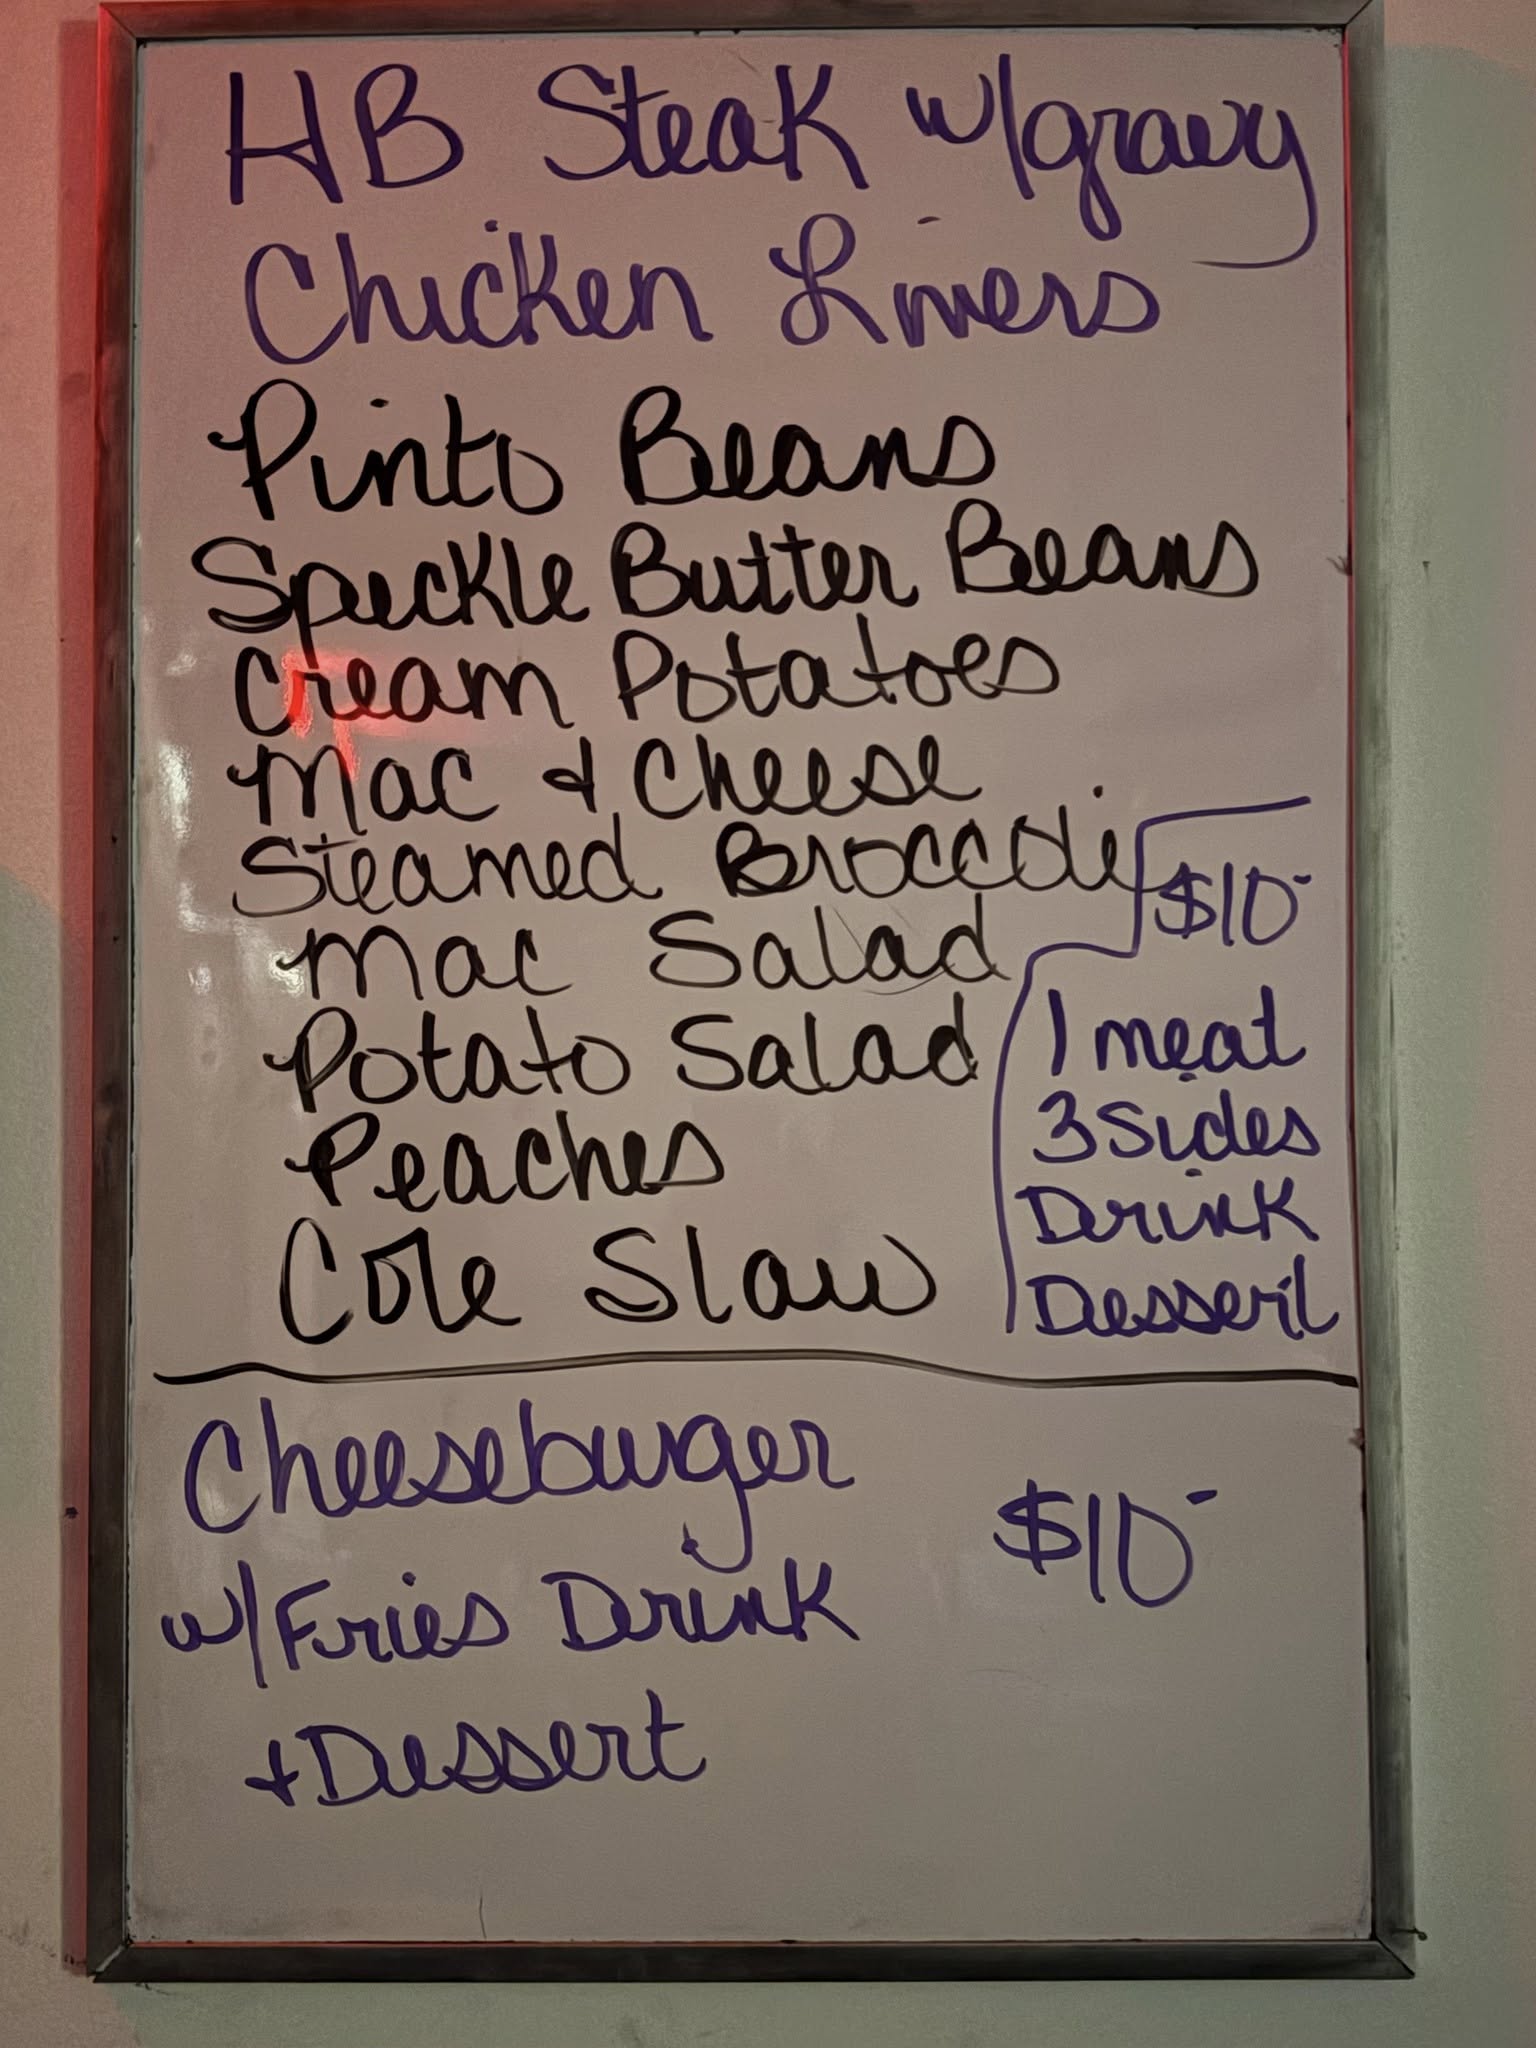 HB Steak w/gravy
Chicken Livers
Pinto Beans
Speckle Butter Beans
Cream Potatoes
Mac & Cheese
Steamed Broccoli
Mac Salad
Potato Salad
Peaches
Cole Slaw
$10-
1 meat
3 Sides
Drink
Dessert
Cheeseburger
w/Fries Drink
+Dessert
$10-